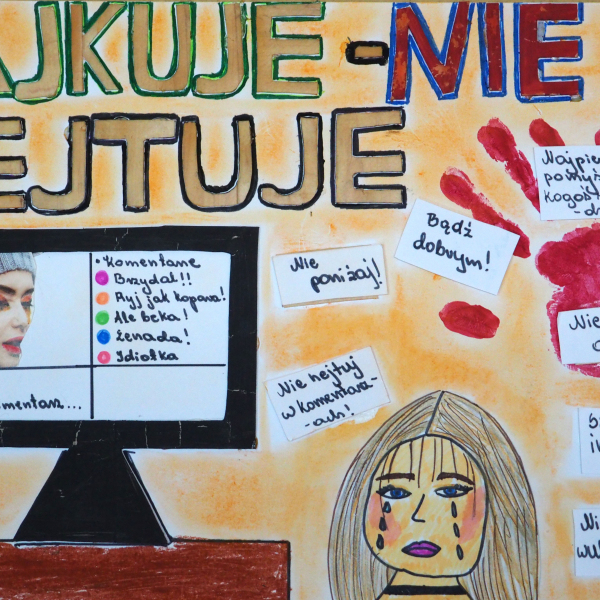 AJKUJE - NIE
EJTUJE
• Komentarze
Brzydal!!
Ryj jak koparа!
Ale beka!
Żenada!
Idiotka
mentarz...
Nie
poniżaj!
Bądź
dobrym!
Nie hejtuj
w komentarz-
-ach!
Nie
Ni